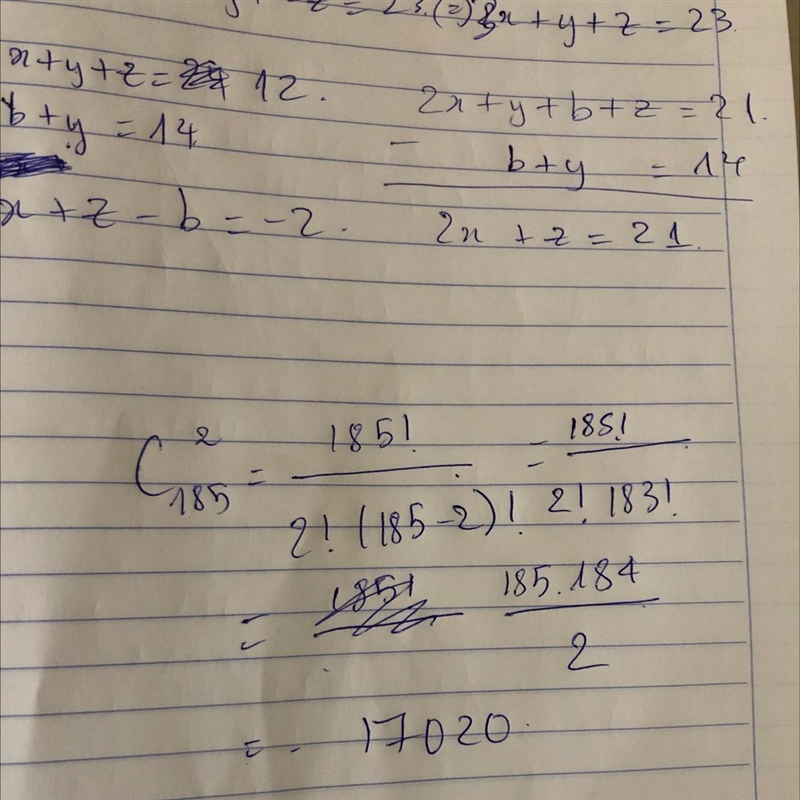 x + y + z = 23.
x + y + z = 12.
b + y = 14
x + z - b = -2.
2x + y + b + z = 21.
- b + y = 14
2x + z = 21.
C²₁₈₅ = 185! / 2! (185-2)! = 185! / 2! 183!
= 185.184 / 2
= 17020